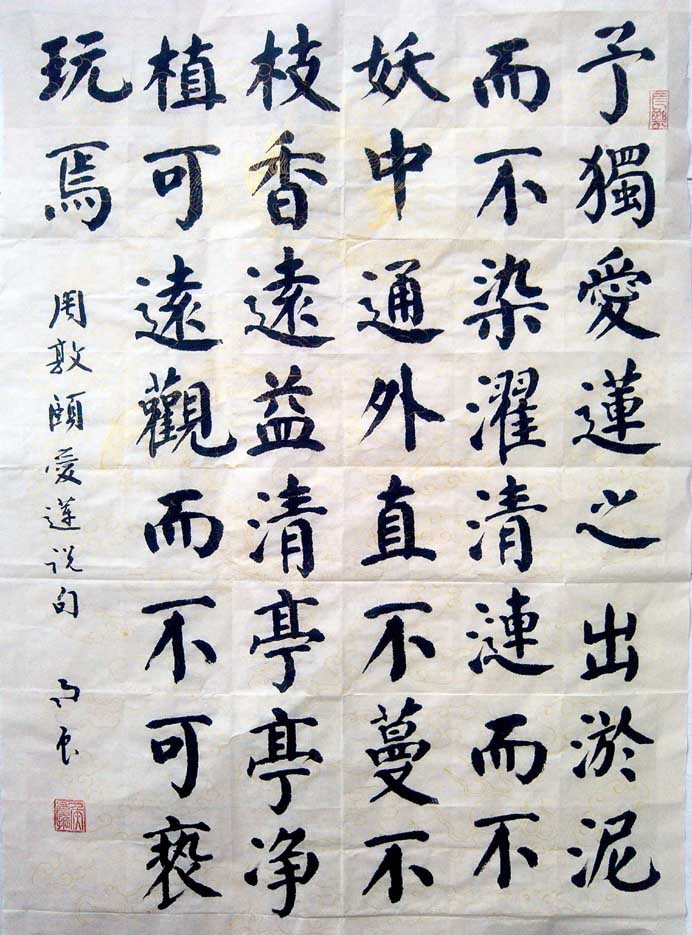 予獨愛蓮之出淤泥
而不染濯清漣而不
妖中通外直不蔓不
枝香遠益清亭亭净
植可遠觀而不可亵
玩焉
周敦頤愛蓮说句